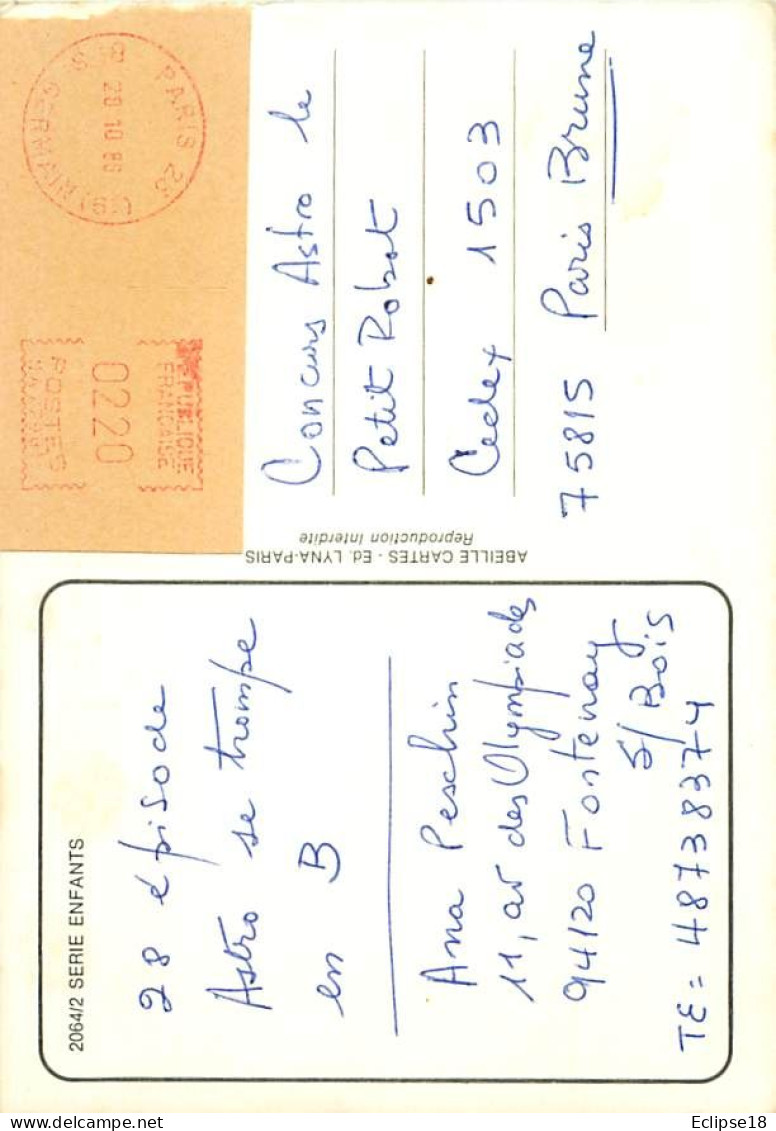 2064/2 SERIE ENFANTS
28 épisode
Astro se trompe
en B
Ana Peschim
11, av des Olympiades
94120 Fontenay
S/ Bois
TE = 48738374
ABEILLE CARTES - Ed. LYNA-PARIS
Reproduction Interdite
PARIS 26
28.10.86
RÉPUBLIQUE
FRANÇAISE
0220
POSTES
Concours Astro le
Petit Robot
Cedex 1503
75815 Paris Brune
Eclipse18